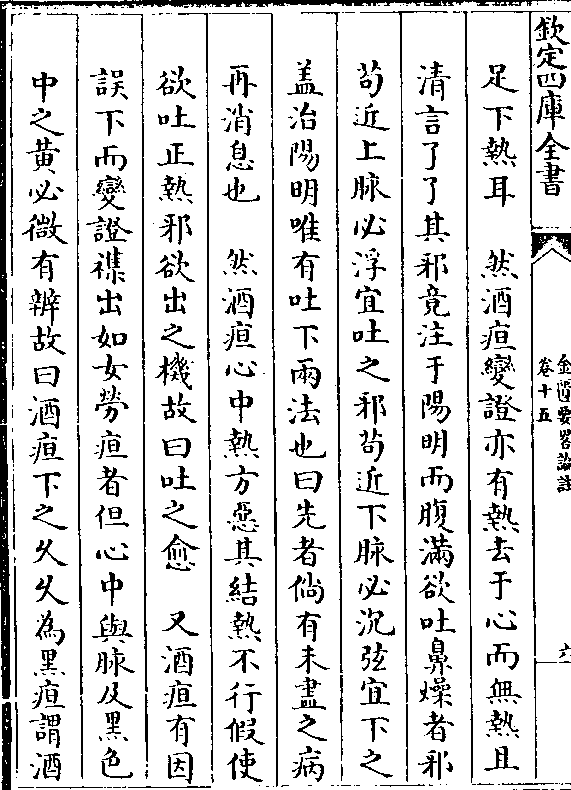 欽定四庫全書
金匱要畧論註
卷十五
六
足下熱耳　然酒疸變證亦有熱去于心而無熱且
清言了了其邪竟注于陽明而腹滿欲吐鼻燥者邪
苟近上脉必浮宜吐之邪苟近下脉必沉弦宜下之
盖治陽明唯有吐下兩法也曰先者倘有未盡之病
再消息也　然酒疸心中熱方惡其結熱不行假使
欲吐正熱邪欲出之機故曰吐之愈　又酒疸有因
誤下而變證襍出如女勞疸者但心中與脉及黑色
中之黄必微有辨故曰酒疸下之乆乆為黑疸謂酒